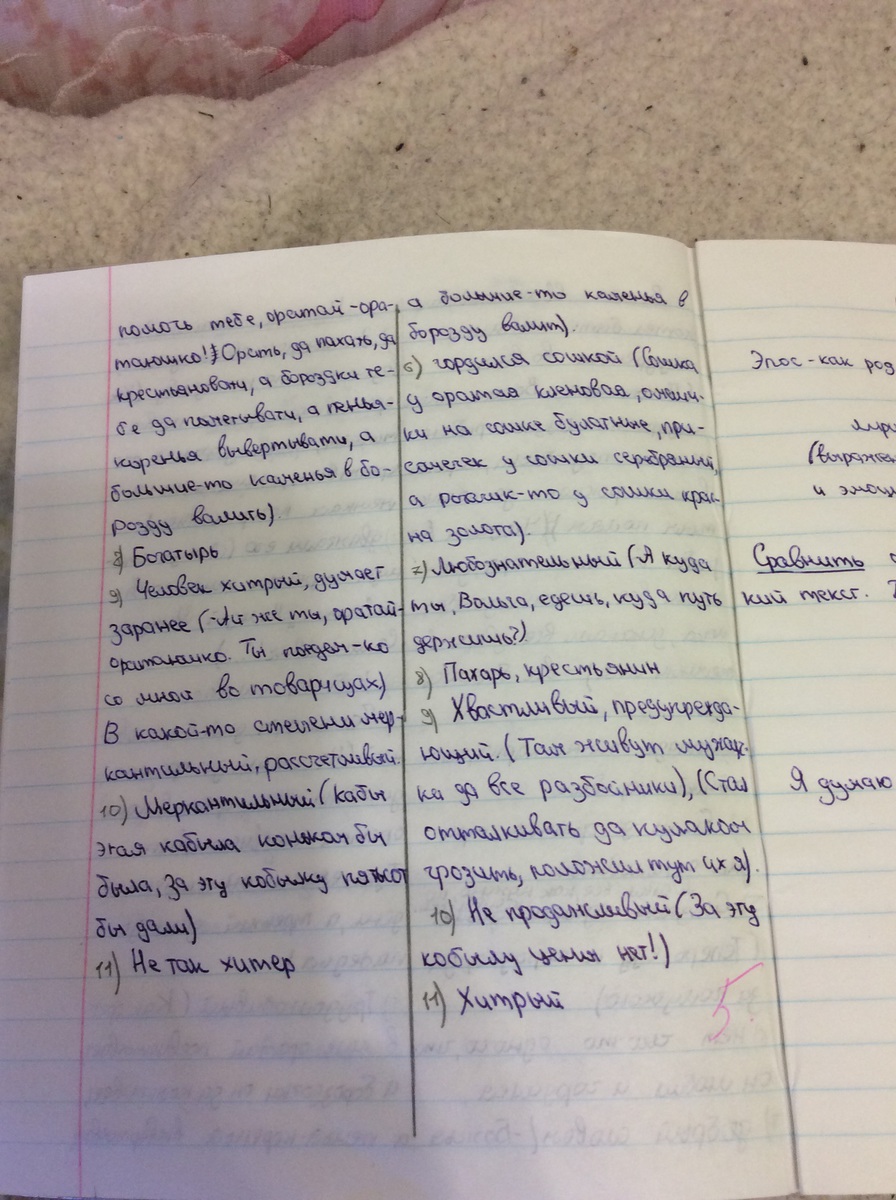 помочь тебе, оратай-ора-
таюшко! Орать, да пахать, да
крестьяновати, а бороздки те-
бе да пометывати, а пенья-
коренья вывертывати, а
большие-то каменья в бо-
розду валить)
8) Богатырь
9) Человек хитрый, думает
заранее (-Ай же ты, оратай-
оратаюшко. Ты поедем-ко
со мной во товарищах)
В какой-то степени мер-
кантильный, рассчетливый.
10) Меркантильный (кабы
этая кабыла коньком бы
была, за эту кобылку пятьсот
бы дали)
11) Не так хитер
а большие-то каменья в
борозду валит).
6) гордился сошкой (Сошка
у оратая кленовая, омеши-
ки на сошке булатные, при-
сошечек у сошки серебряный,
а рогачик-то у сошки крас-
на золота).
7) Любознательный (А куда
ты, Вольга, едешь, куда путь
держишь?)
8) Пахарь, крестьянин
9) Хвастливый, предупрежда-
ющий. (Там живут мужич-
ка да все разбойники), (Стал
отталкивать да кулаком
грозить, положил тут их я).
10) Не продажливый (За эту
кобылу цены нет!)
11) Хитрый
5
Эпос - как род
(выражен
и эмоц
Сравнить
кий текст.
Я думаю